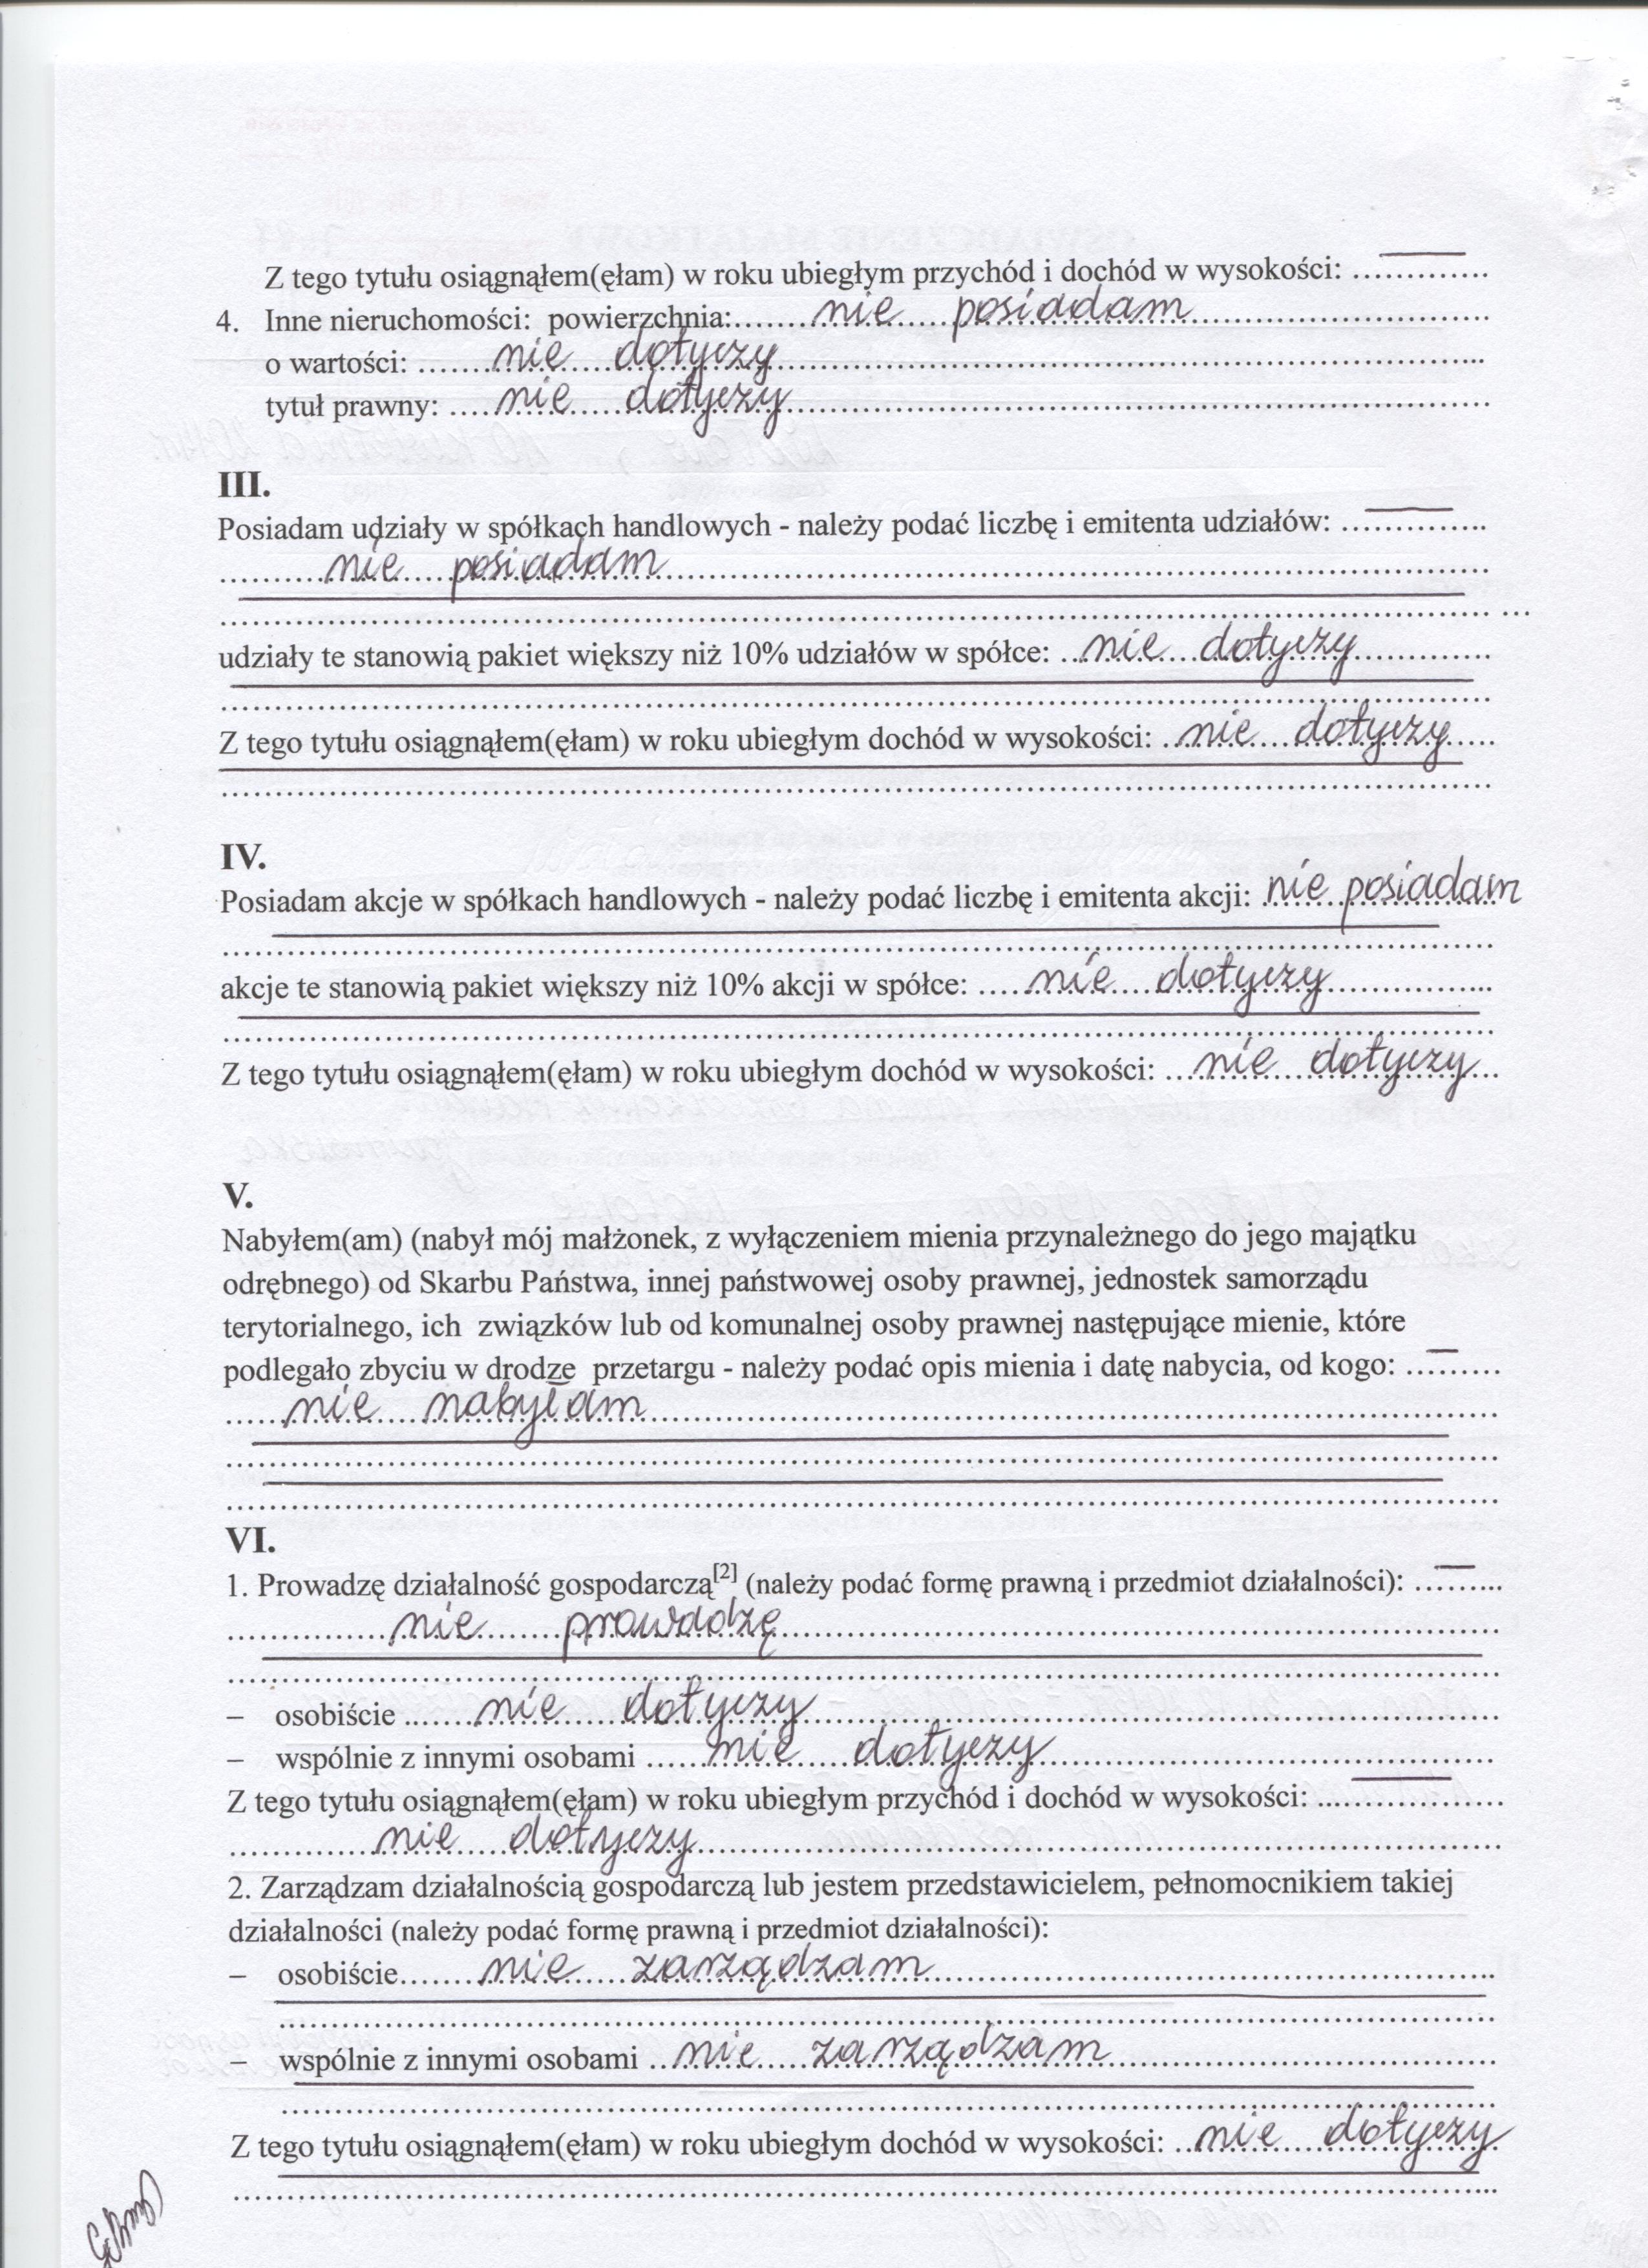 Z tego tytułu osiągnąłem(ęłam) w roku ubiegłym przychód i dochód w wysokości: ..............
4. Inne nieruchomości: powierzchnia: nie posiadam
o wartości: nie dotyczy
tytuł prawny: nie dotyczy
III.
Posiadam udziały w spółkach handlowych - należy podać liczbę i emitenta udziałów: ..............
nie posiadam
udziały te stanowią pakiet większy niż 10% udziałów w spółce: nie dotyczy
Z tego tytułu osiągnąłem(ęłam) w roku ubiegłym dochód w wysokości: nie dotyczy
IV.
Posiadam akcje w spółkach handlowych - należy podać liczbę i emitenta akcji: nie posiadam
akcje te stanowią pakiet większy niż 10% akcji w spółce: nie dotyczy
Z tego tytułu osiągnąłem(ęłam) w roku ubiegłym dochód w wysokości: nie dotyczy
V.
Nabyłem(am) (nabył mój małżonek, z wyłączeniem mienia przynależnego do jego majątku
odrębnego) od Skarbu Państwa, innej państwowej osoby prawnej, jednostek samorządu
terytorialnego, ich związków lub od komunalnej osoby prawnej następujące mienie, które
podlegało zbyciu w drodze przetargu - należy podać opis mienia i datę nabycia, od kogo: ..........
nie nabyłam
VI.
1. Prowadzę działalność gospodarczą[2] (należy podać formę prawną i przedmiot działalności): .........
nie prowadzę
– osobiście nie dotyczy
– wspólnie z innymi osobami nie dotyczy
Z tego tytułu osiągnąłem(ęłam) w roku ubiegłym przychód i dochód w wysokości: ...................
nie dotyczy
2. Zarządzam działalnością gospodarczą lub jestem przedstawicielem, pełnomocnikiem takiej
działalności (należy podać formę prawną i przedmiot działalności):
– osobiście nie zarządzam
– wspólnie z innymi osobami nie zarządzam
Z tego tytułu osiągnąłem(ęłam) w roku ubiegłym dochód w wysokości: nie dotyczy